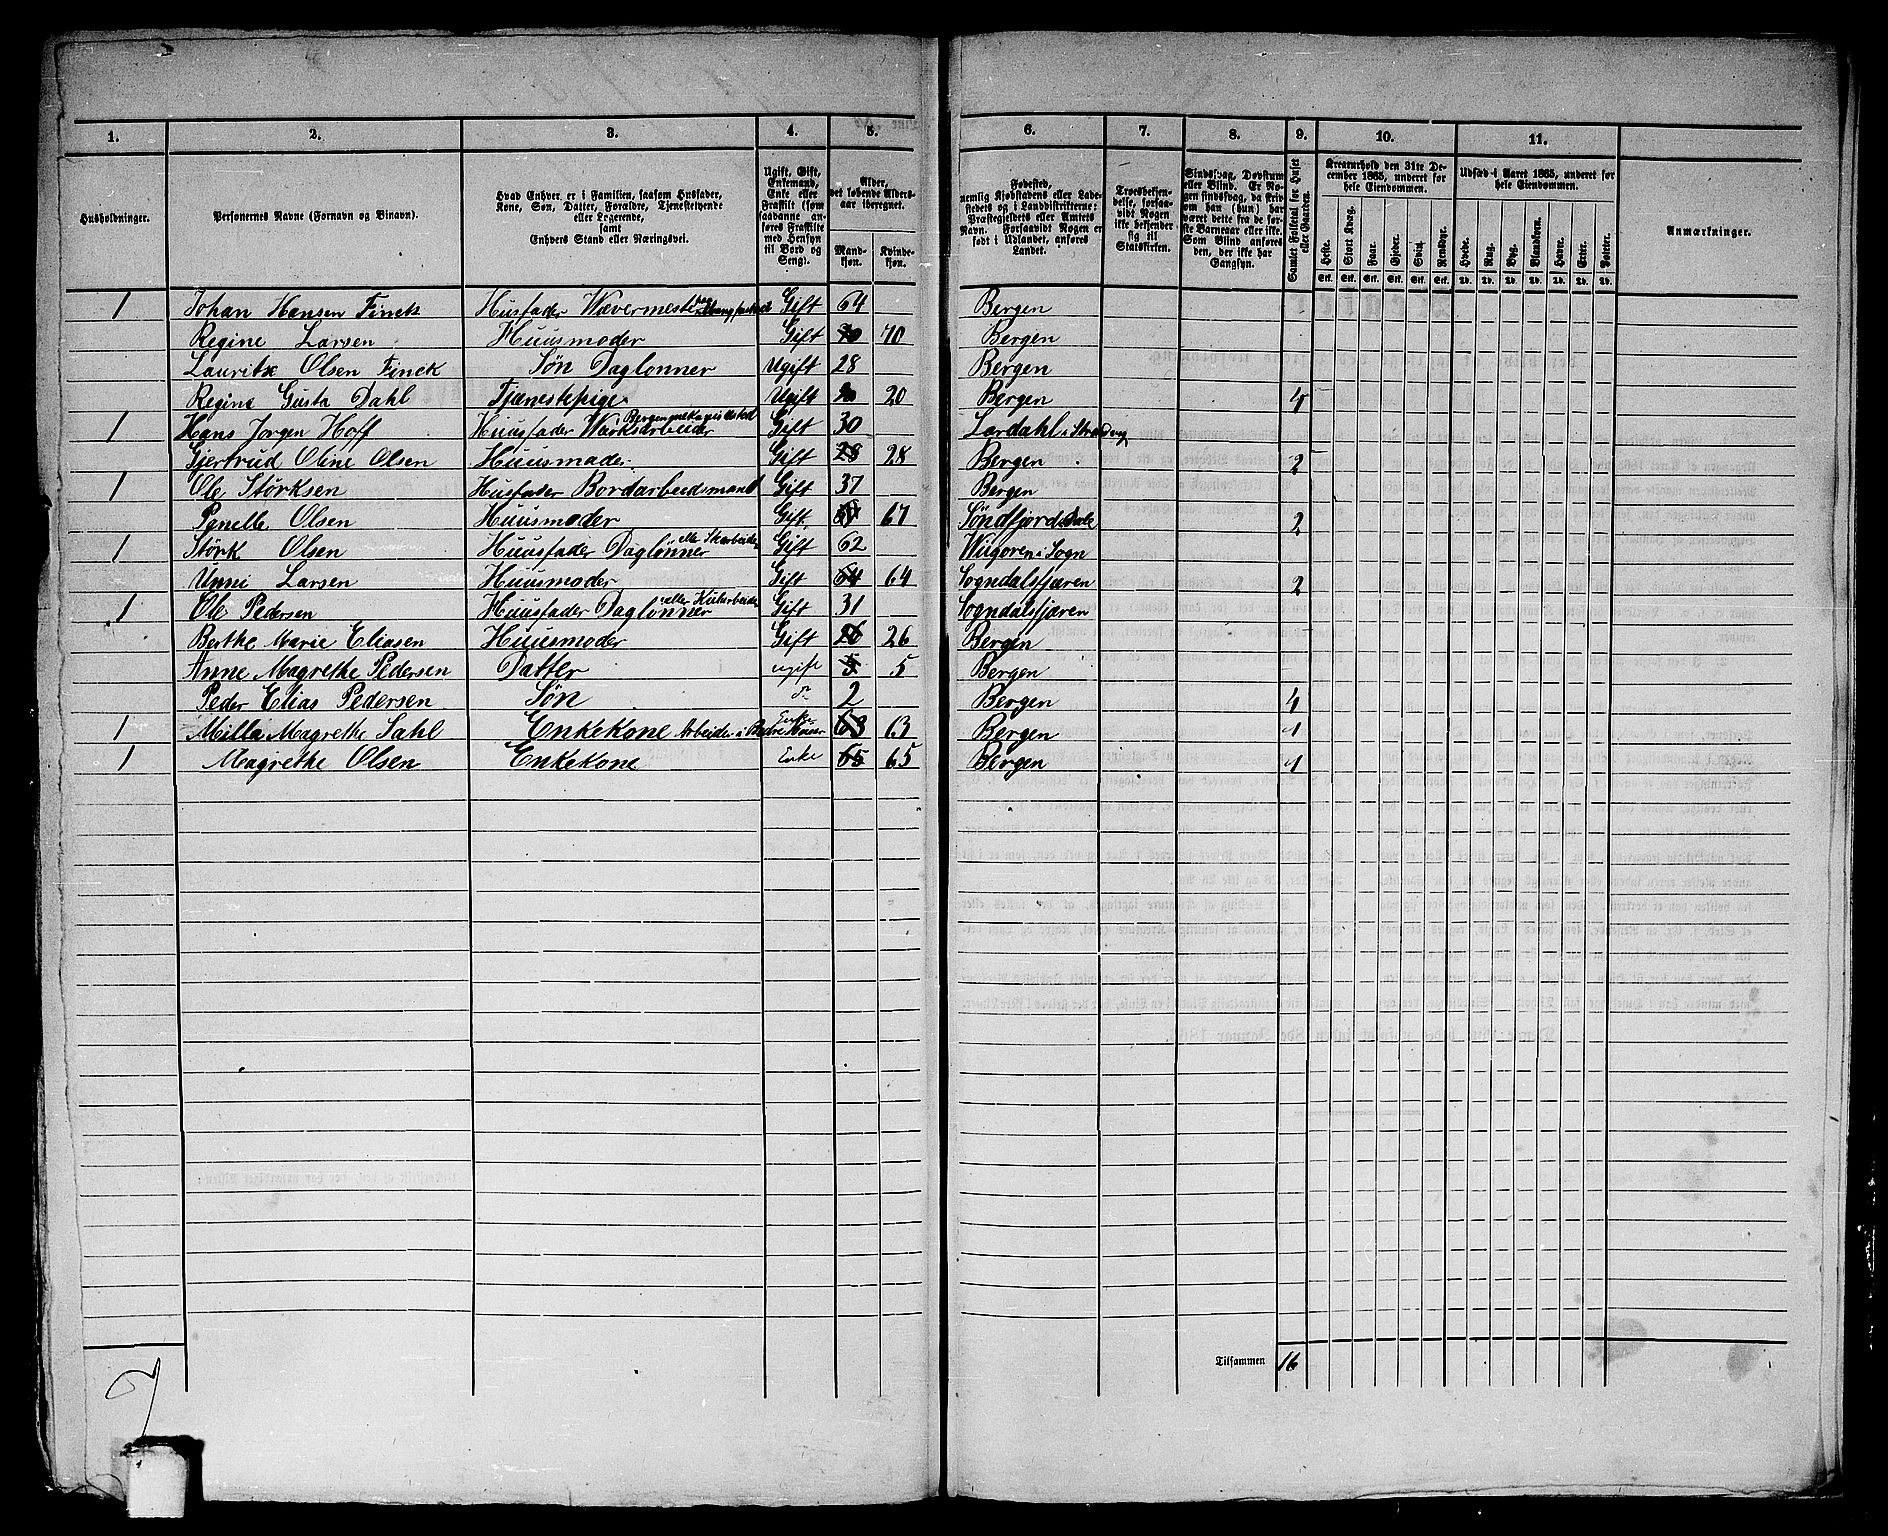 1. 2. 3. 4. 5. 6. 7. 8. 9. 10. 11.
Husholdninger.
Personernes Navne (Fornavn og Binavn).
Hvad Enhver er i Familien, saasom Husfader,
Kone, Søn, Datter, Forældre, Tjenestetyende
eller Logerende,
samt
Enhvers Stand eller Næringsvei.
Ugift, Gift,
Enkemand,
Enke eller
Fraskilt (som
saadanne an-
føres Fraskilte
med Hensyn
til Bord og
Seng).
Alder,
det løbende Alders-
aar iberegnet.
Mand-
kjøn.
Kvinde-
kjøn.
Fødested,
nemlig Kjøbstadens eller Lade-
stedets og i Landdistrikterne:
Præstegjeldets eller Amtets
Navn. Forsaavidt Nogen er
født i Udlandet, anføres
Landet.
Troesbekjen-
delse, forsaa-
vidt Nogen
ikke bekjender
sig til
Statskirken.
Sindssvag, Døvstum
eller Blind. Er No-
gen sindssvag, da skriv
om han (hun) har
været dette fra de før-
ste Barneaar eller ikke.
Som Blind anføres
den, der ikke har
Gangsyn.
Samlet Folketal for Huset
eller Gaarden.
Kreaturhold den 31te De-
cember 1865, underet for
hele Eiendommen.
Heste. Stort Kvæg. Faar. Gjeder. Sviin. Rensdyr.
Stk. Stk. Stk. Stk. Stk. Stk.
Udsæd i Aaret 1865, underet for
hele Eiendommen.
Hvede. Rug. Byg. Blandkorn. Havre. Erter. Poteter.
Td. Td. Td. Td. Td. Td. Td.
Anmærkninger.
1 Johan Hansen Finck Husfader Wævermester Gift 64 Bergen
Regine Larsen Huusmoder Gift 70 70 Bergen
Lauritz Olsen Finck Søn Daglønner Ugift 28 Bergen
Regine Gusta Dahl Tjænestepige Ugift 20 20 Bergen 4
1 Hans Jorgen Hoff Huusfader Værksarbeider Gift 30 Lærdahl
Gjertrud Oline Olsen Huusmoder Gift 28 28 Bergen 2
1 Ole Størksen Husfader Bordarbeidsmand Gift 37 Bergen
Penelle Olsen Huusmoder Gift 67 Søndfjord Dale 2
1 Størk Olsen Huusfader Daglønner Gift 62 i Sogn
Unni Larsen Huusmoder Gift 64 64 Sogndalsfjæren 2
1 Ole Pedersen Huusfader Daglønner eller Kularbeider Gift 31 Sogndalsfjæren
Berthe Marie Eliasen Huusmoder Gift 26 26 Bergen
Anne Magrethe Pedersen Datter ugift 5 5 Bergen
Peder Elias Pedersen Søn do 2 Bergen 4
1 Milla Magrethe Dahl Enkekone Arbeider i Enke 63 63 Bergen 1
1 Magrethe Olsen Enkekone Enke 65 65 Bergen 1
Tilsammen 16
7